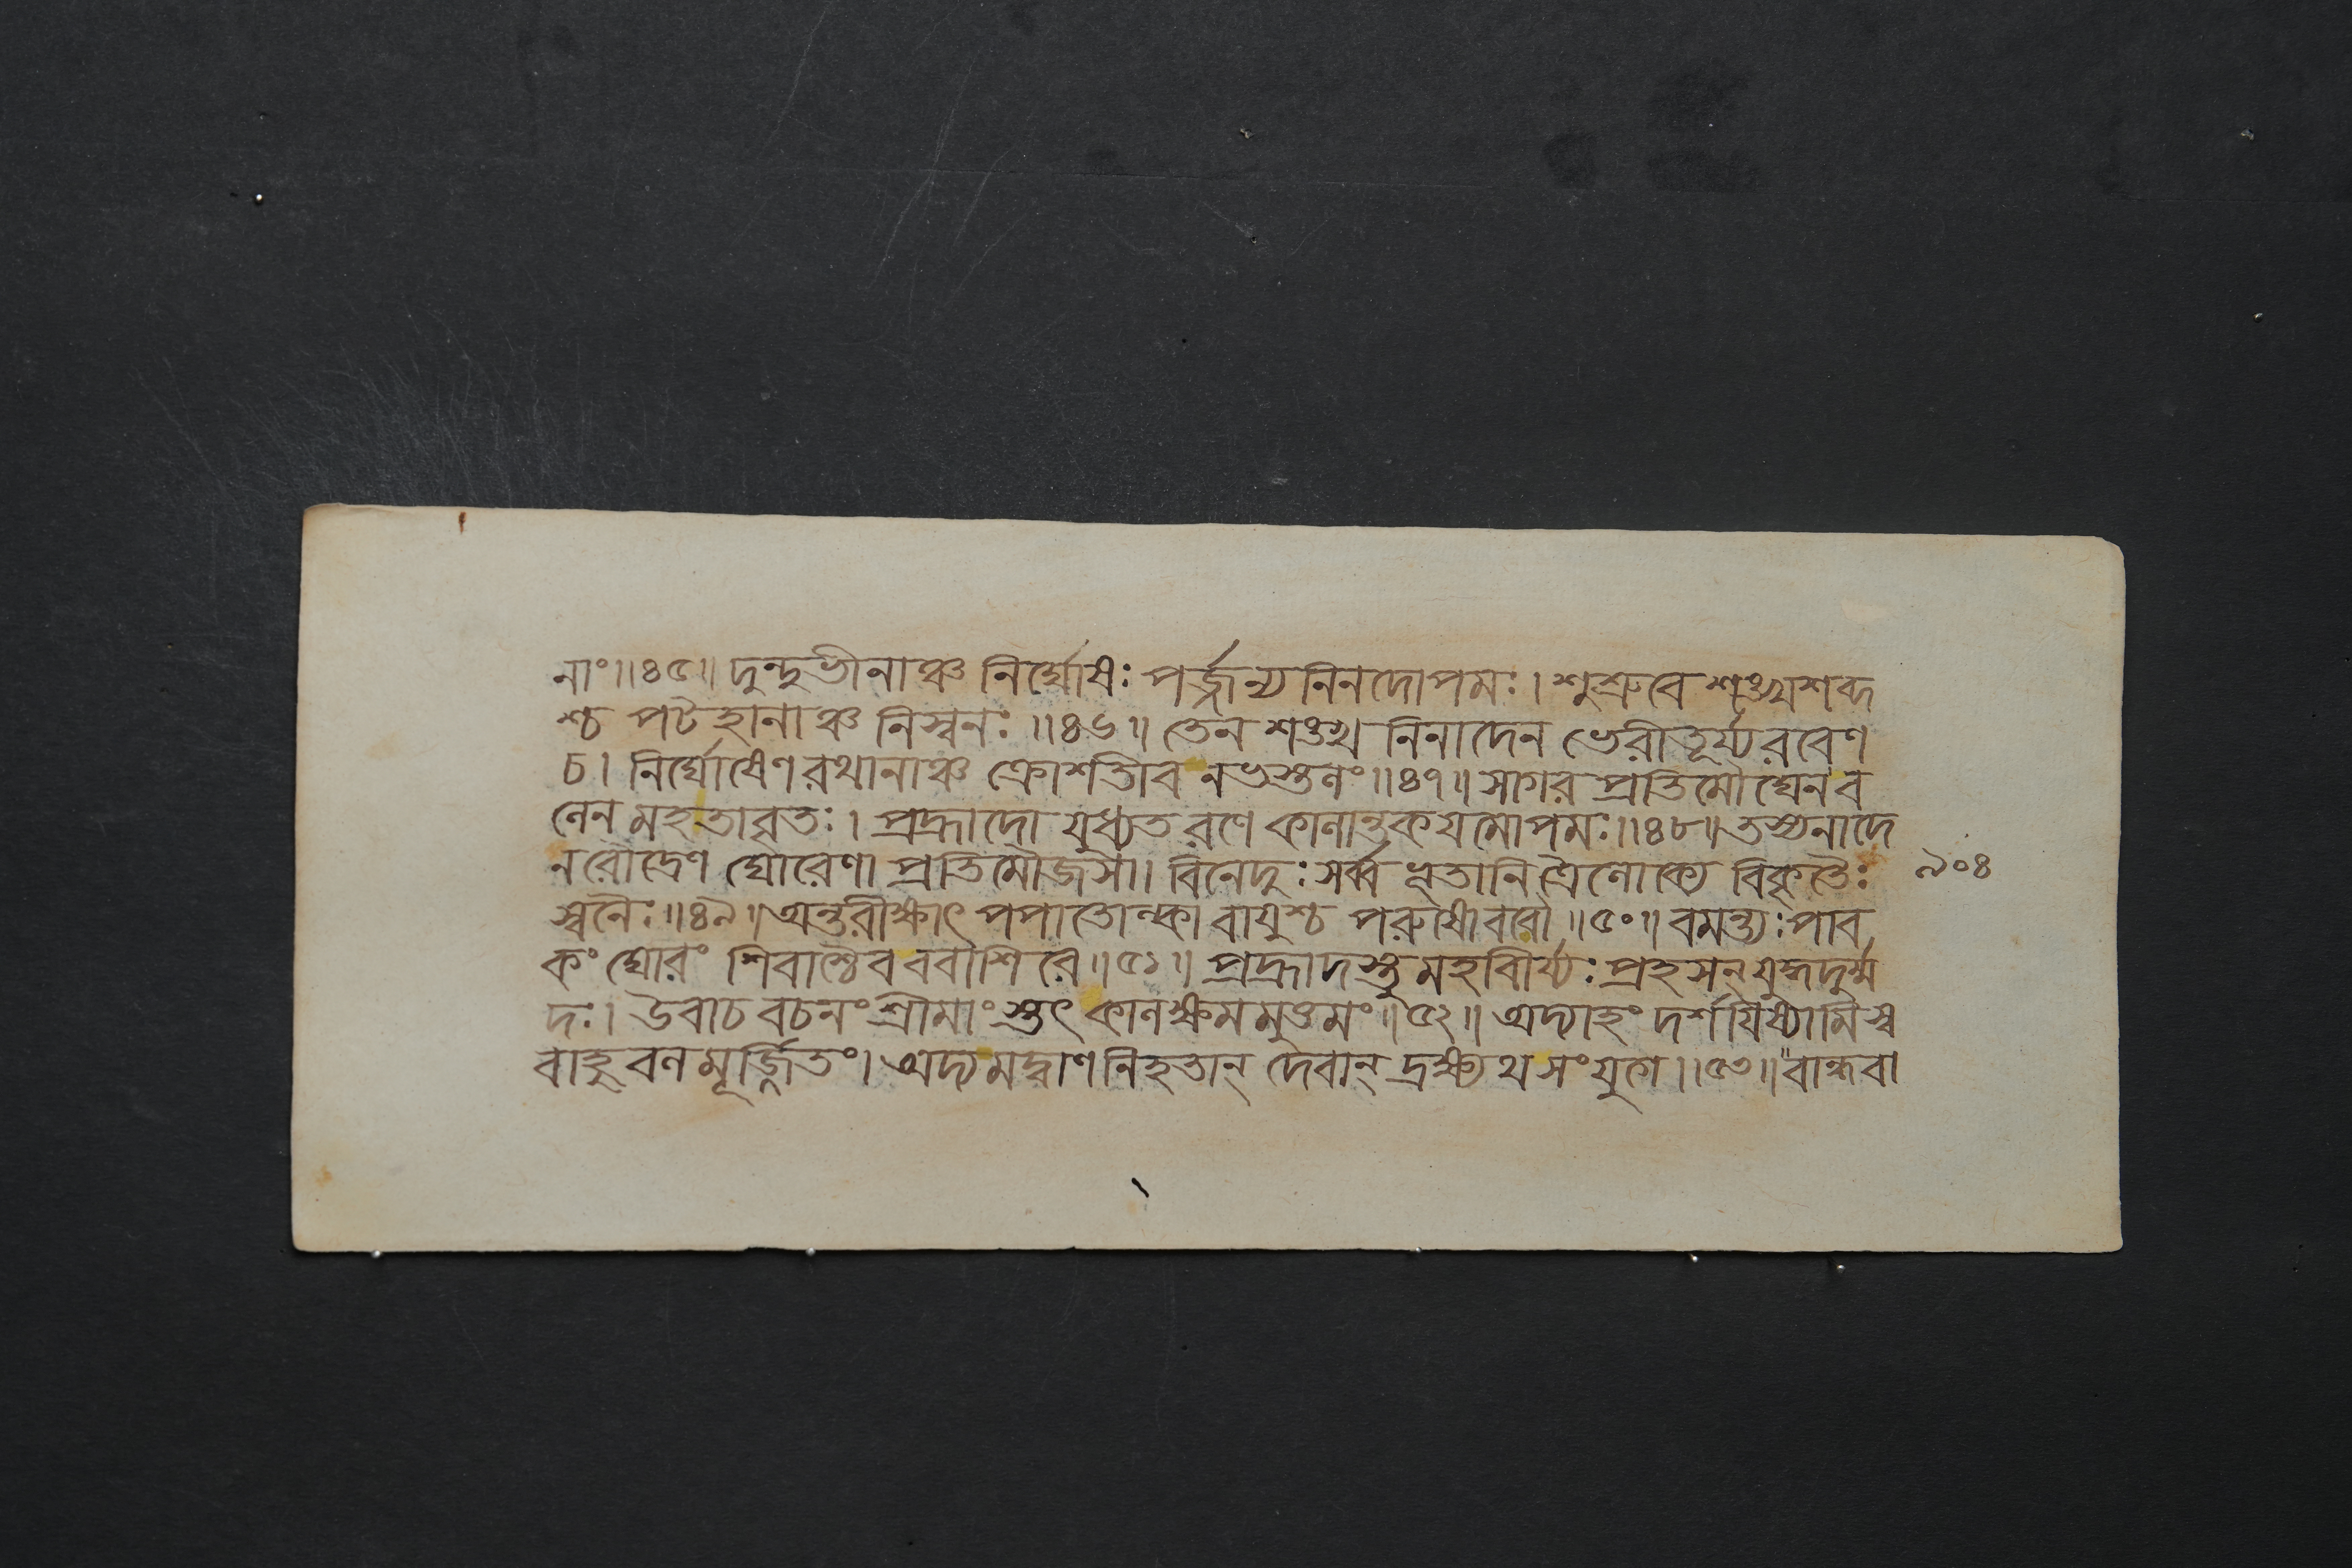 নাং॥৪৫॥ দুন্দুভীনাঞ্চ নির্ঘোষঃ পর্জ্জন্য নিনদোপমঃ। শুশ্রুবে শঙ্খশব্দ
শ্চ পটহানাঞ্চ নিস্বনঃ॥৪৬॥ তেন শঙ্খ নিনাদেন ভেরীতূর্য্যরবেণ
চ। নির্ঘোষেণ রথানাঞ্চ ক্রোশতীব নভস্তলং॥৪৭॥ সাগর প্রতিমৌঘেন ব
লেন মহতাবৃতঃ। প্রহ্লাদো যুধ্যত রণে কালান্তকযমোপমঃ॥৪৮॥ তস্যনাদে
ন রৌদ্রেণ ঘোরেণা প্রতিমৌজসা। বিনেদুঃ সর্ব্ব ভূতানি ত্রৈলোক্যে বিকৃতৈঃ
স্বনৈঃ॥৪৯॥ অন্তরীক্ষাৎ পপাতোল্কা বায়ুশ্চ পরুষোববৌ॥৫০॥ বমন্ত্যঃ পাব
কং ঘোরং শিবাশ্চৈব ববাশিরে॥৫১॥ প্রহ্লাদস্তু মহবীর্য্যঃ প্রহসন্ যুদ্ধদুর্ম্ম
দঃ। উবাচ বচনং শ্রীমাংস্তৎ কালক্ষমমুত্তমং॥৫২॥ অদ্যাহং দর্শয়িষ্যামি স্ব
বাহুবলমূর্জ্জিতং। অদ্য মদ্বাণ নিহতান্ দেবান্ দ্রক্ষ্যথ সংযুগে॥৫৩॥ বান্ধবা
৯০৪